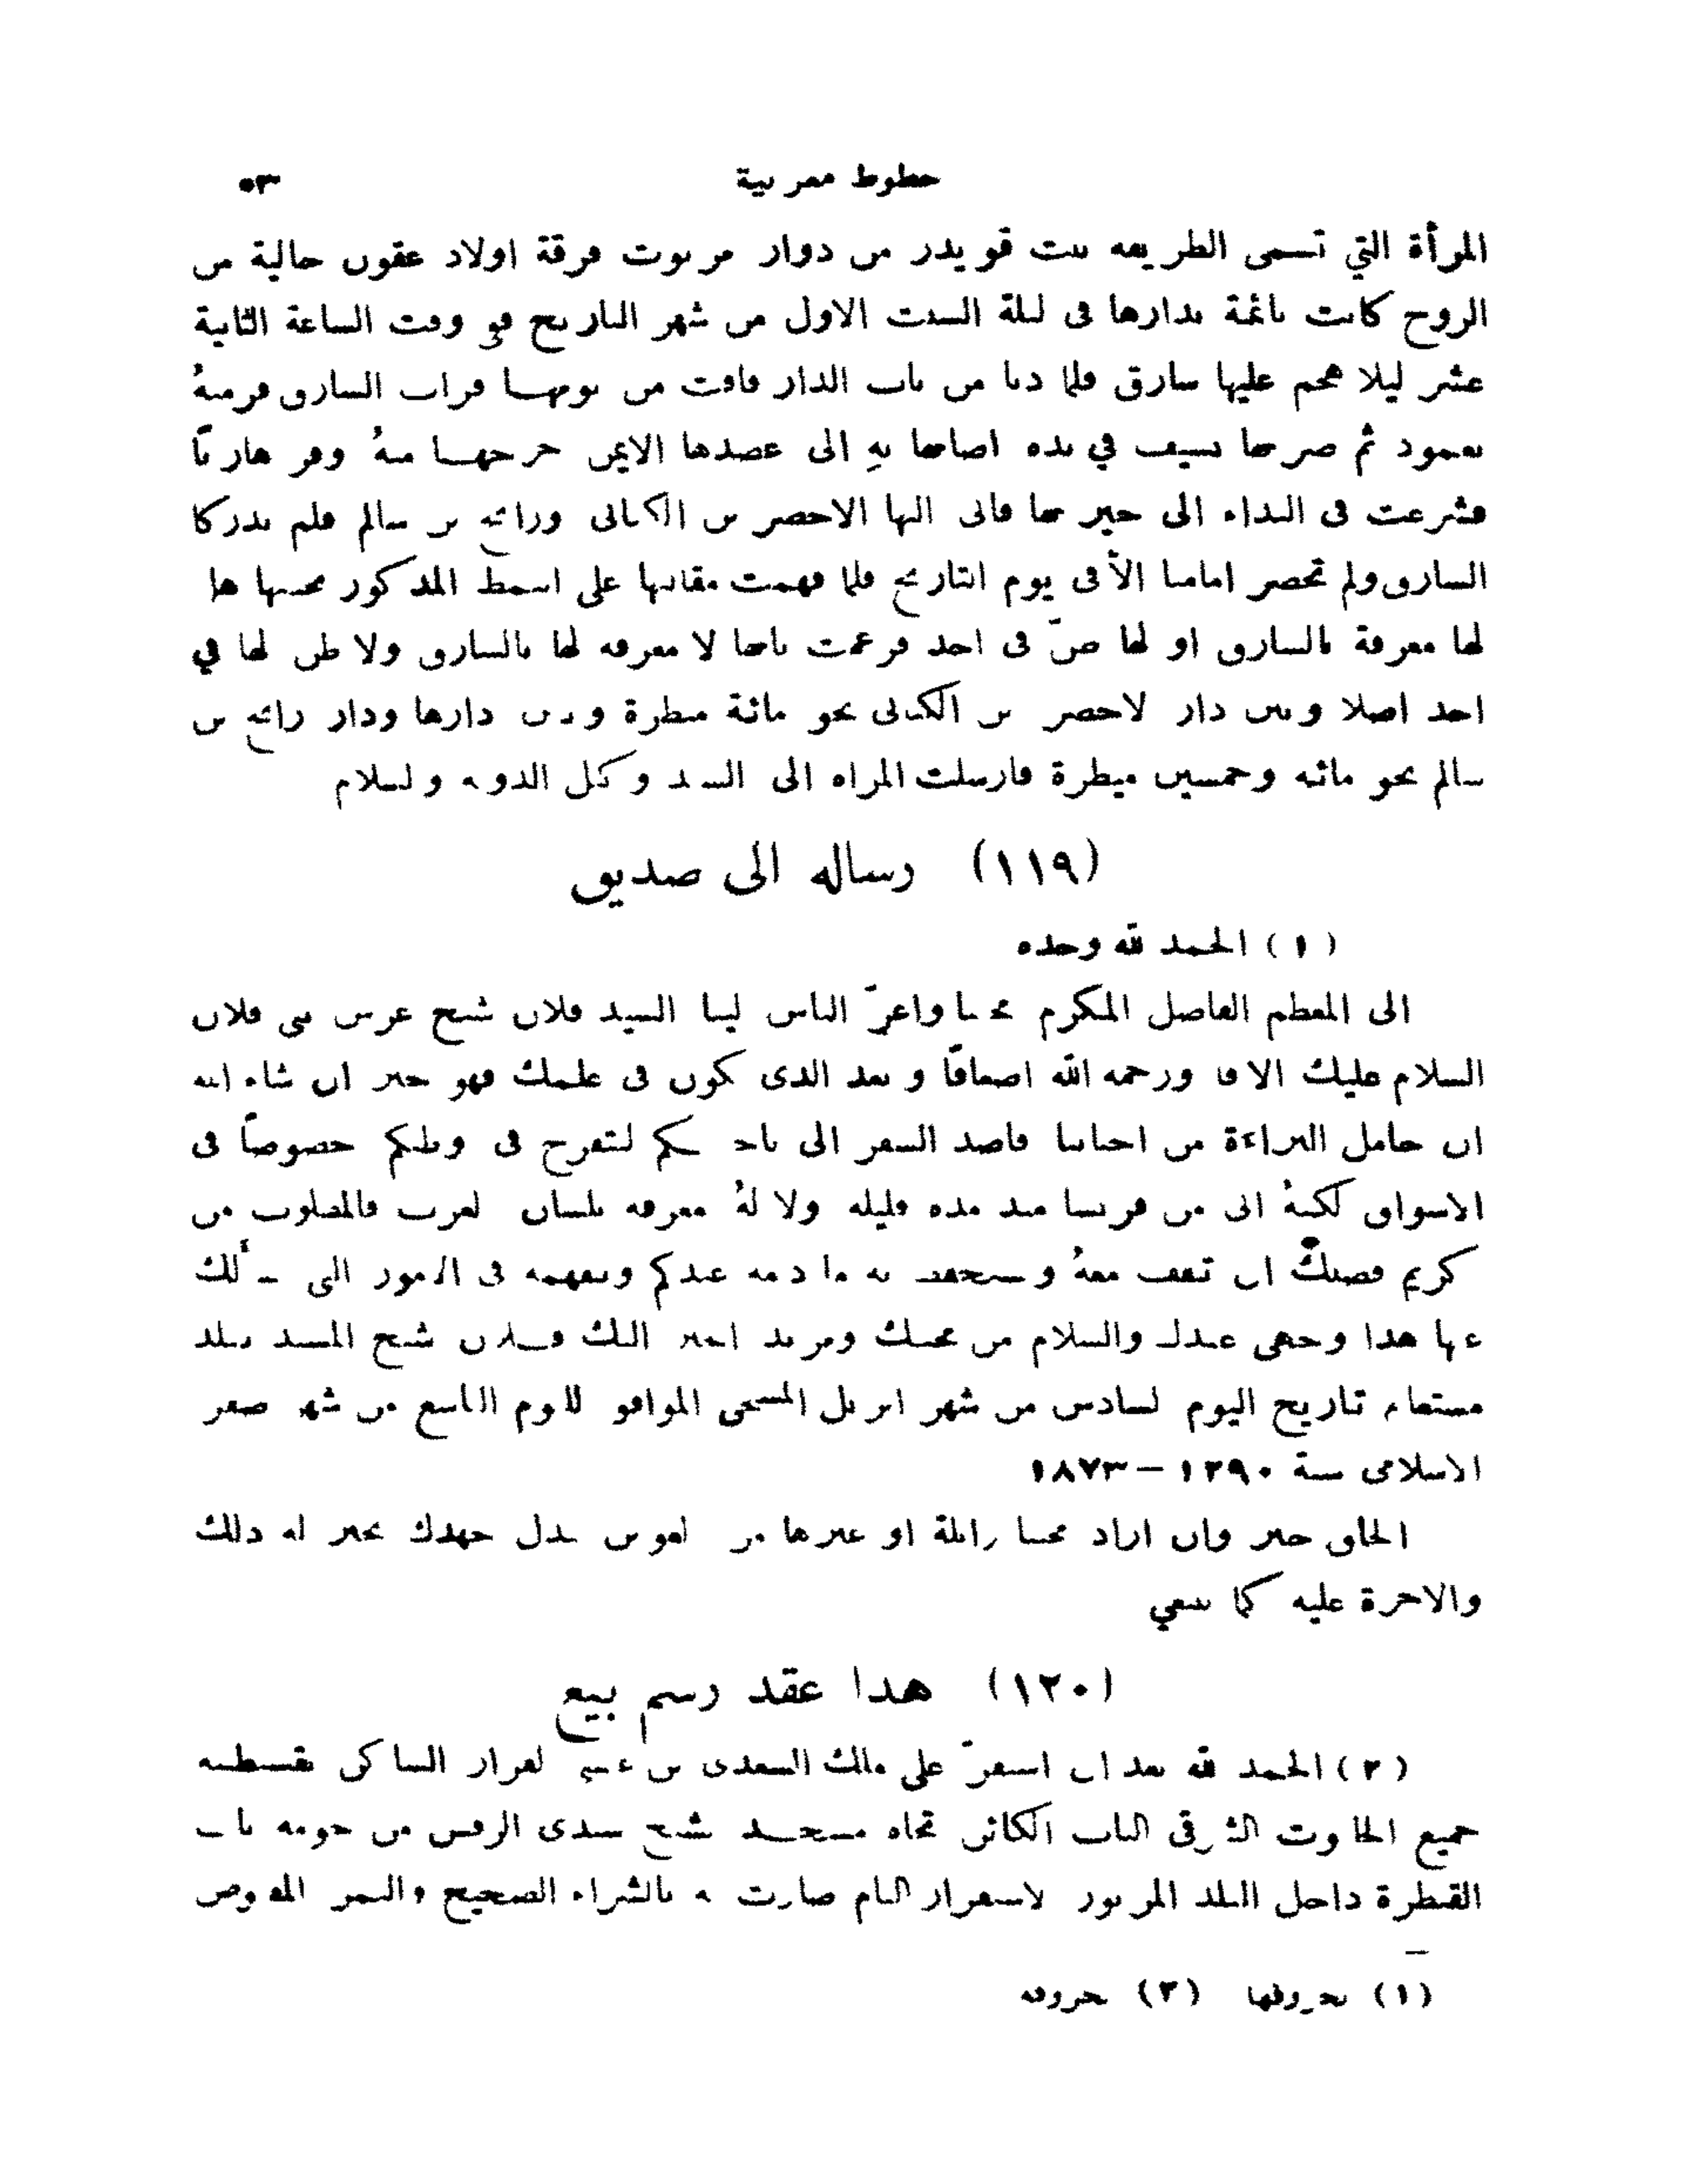 خطوط مغربية ٥٣
المرأة التي تسمى الطريفه بنت قويدر من دوار مر بوت فرقة اولاد عقون خالية من
الروح كانت نائمة بدارها فى ليلة السبت الاول من شهر التاريخ فى وقت الساعة الثانية
عشر ليلا هجم عليها سارق فلما دنا من باب الدار فاقت من نومها فرات السارق فرمته
بعمود ثم ضربها بسيف في يده اصابها به الى عضدها الايمن جرحها منهُ وفر هاربًا
فشرعت فى النداء الى جيرانها فاتى اليها الاخضر بن الكتانى ورابح بن سالم فلم يدركا
السارق ولم تحضر امامنا الاّ فى يوم التاريخ فلما فهمت مقالتها على النمط المذكور هل
لها معرفة بالسارق او لها ظنّ فى احد فزعمت بانها لا معرفه لها بالسارق ولا ظن لها في
احد اصلا وبين دار الاخضر بن الكتانى نحو مائة ميطرة وبين دارها ودار رابح بن
سالم نحو مائه وخمسين ميطرة فارسلت المراه الى السيد وكيل الدوله والسلام
(١١٩) رساله الى صديق
(١) الحمد لله وحده
الى المعظم الفاضل المكرم محبنا واعزّ الناس لدينا السيد فلان شيخ عرش بنى فلان
السلام عليك ورحمه الله اضعافًا و بعد الذى يكون فى علمك فهو خير ان شاء الله
ان حامل البراءة من احبابنا قاصد السفر الى ناحيتكم لتفرج فى وطنكم خصوصًا فى
الاسواق لكنهُ اتى من فرنسا منذ مده قليله ولا لهُ معرفه بلسان العرب فالمطلوب من
كريم فضلك ان تقف معهُ وعندكم وتفهمه فى الامور التى يسألك
عنها هذا وحقى عندك والسلام من محبك ومريد الخير اليك فلان شيخ المسيد ببلد
مستغانم تاريخ اليوم السادس من شهر ابريل المسيحى الموافق لليوم التاسع من شهر صفر
الاسلامى سنة ١٢٩٠ – ١٨٧٣
الحاق خير وان اراد محبنا او غيرها ابذل جهدك يخير له ذلك
والاجرة عليه كما ينبغي
(١٢٠) هذا عقد رسم بيع
(٢) الحمد لله بعد ان استقرّ على مالك السعدى بن الساكن بقسنطينه
جميع الحانوت الشرقى الباب الكائن تجاه مسجد الشيخ سيدى من حومه باب
القنطرة داخل البلد المزبور الاستقرار التام صارت له بالشراء الصحيح والثمن المقبوض
(١) بحروفها (٢) بحروفه